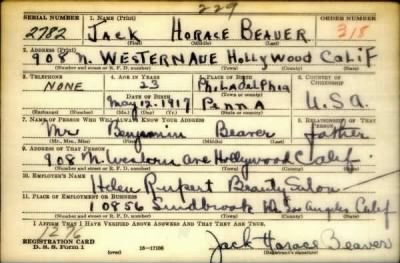 229
SERIAL NUMBER 1. NAME (Print) ORDER NUMBER
2782 JACK HORACE BEAVER 318
(First) (Middle) (Last)
2. ADDRESS (Print)
908 N. WESTERN AVE HOLLYWOOD CALIF
(Number and street or R. F. D. number) (Town) (County) (State)
3. TELEPHONE 4. AGE IN YEARS 5. PLACE OF BIRTH 6. COUNTRY OF CITIZENSHIP
NONE 23 PHILADELPHIA
DATE OF BIRTH (Town or county)
May 12. 1917 PENNA U.S.A.
(Mo.) (Day) (Yr.) (State or country)
7. NAME OF PERSON WHO WILL ALWAYS KNOW YOUR ADDRESS 8. RELATIONSHIP OF THAT PERSON
Mr Benjamin Beaver father
(Mr., Mrs., Miss) (First) (Middle) (Last)
9. ADDRESS OF THAT PERSON
908 N. Western ave Hollywood Calif.
(Number and street or R. F. D. number) (Town) (County) (State)
10. EMPLOYER'S NAME
Helen Rupert Beauty Salon
11. PLACE OF EMPLOYMENT OR BUSINESS
10856 Los Angeles Calif
(Number and street or R. F. D. number) (Town) (County) (State)
I AFFIRM THAT I HAVE VERIFIED ABOVE ANSWERS AND THAT THEY ARE TRUE.
REGISTRATION CARD
D. S. S. Form 1 16—17105 Jack Horace Beaver